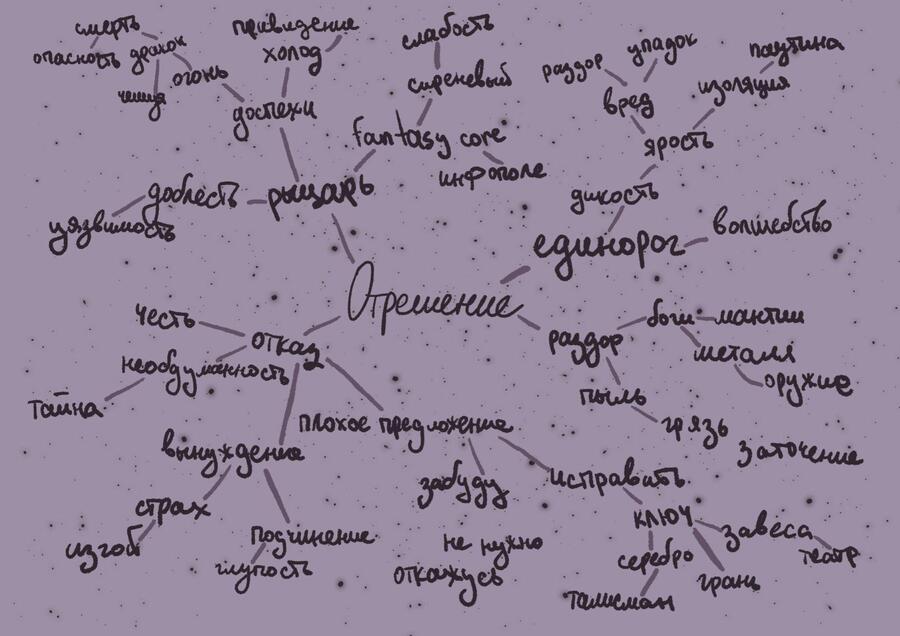 смерть
опасность
дракон
огонь
чешуя
привидение
холод
доспехи
слабость
сиреневый
fantasy core
инфополе
раздор
упадок
паутина
вред
изоляция
ярость
дикость
доблесть
рыцарь
уязвимость
единорог
волшебство
Отрешение
честь
отказ
необдуманность
тайна
раздор
боги
мантии
металл
оружие
пыль
грязь
заточение
плохое предложение
вынуждение
забуду
исправить
страх
изгой
подчинение
глупость
не нужно
откажусь
ключ
завеса
театр
серебро
грань
талисман